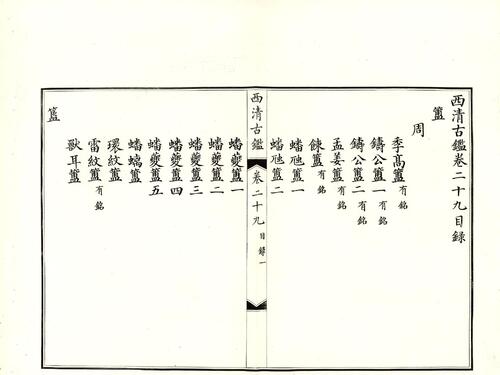 西清古鑑卷二十九目録
簠
周
季高簠有銘
鑄公簠一有銘
鑄公簠二有銘
孟姜簠有銘
餗簠有銘
蟠虺簠一
蟠虺簠二
西清古鑑 卷二十九 目録 一
蟠夔簠一
蟠夔簠二
蟠夔簠三
蟠夔簠四
蟠夔簠五
蟠螭簠
環紋簠
雷紋簠有銘
獸耳簠
簠